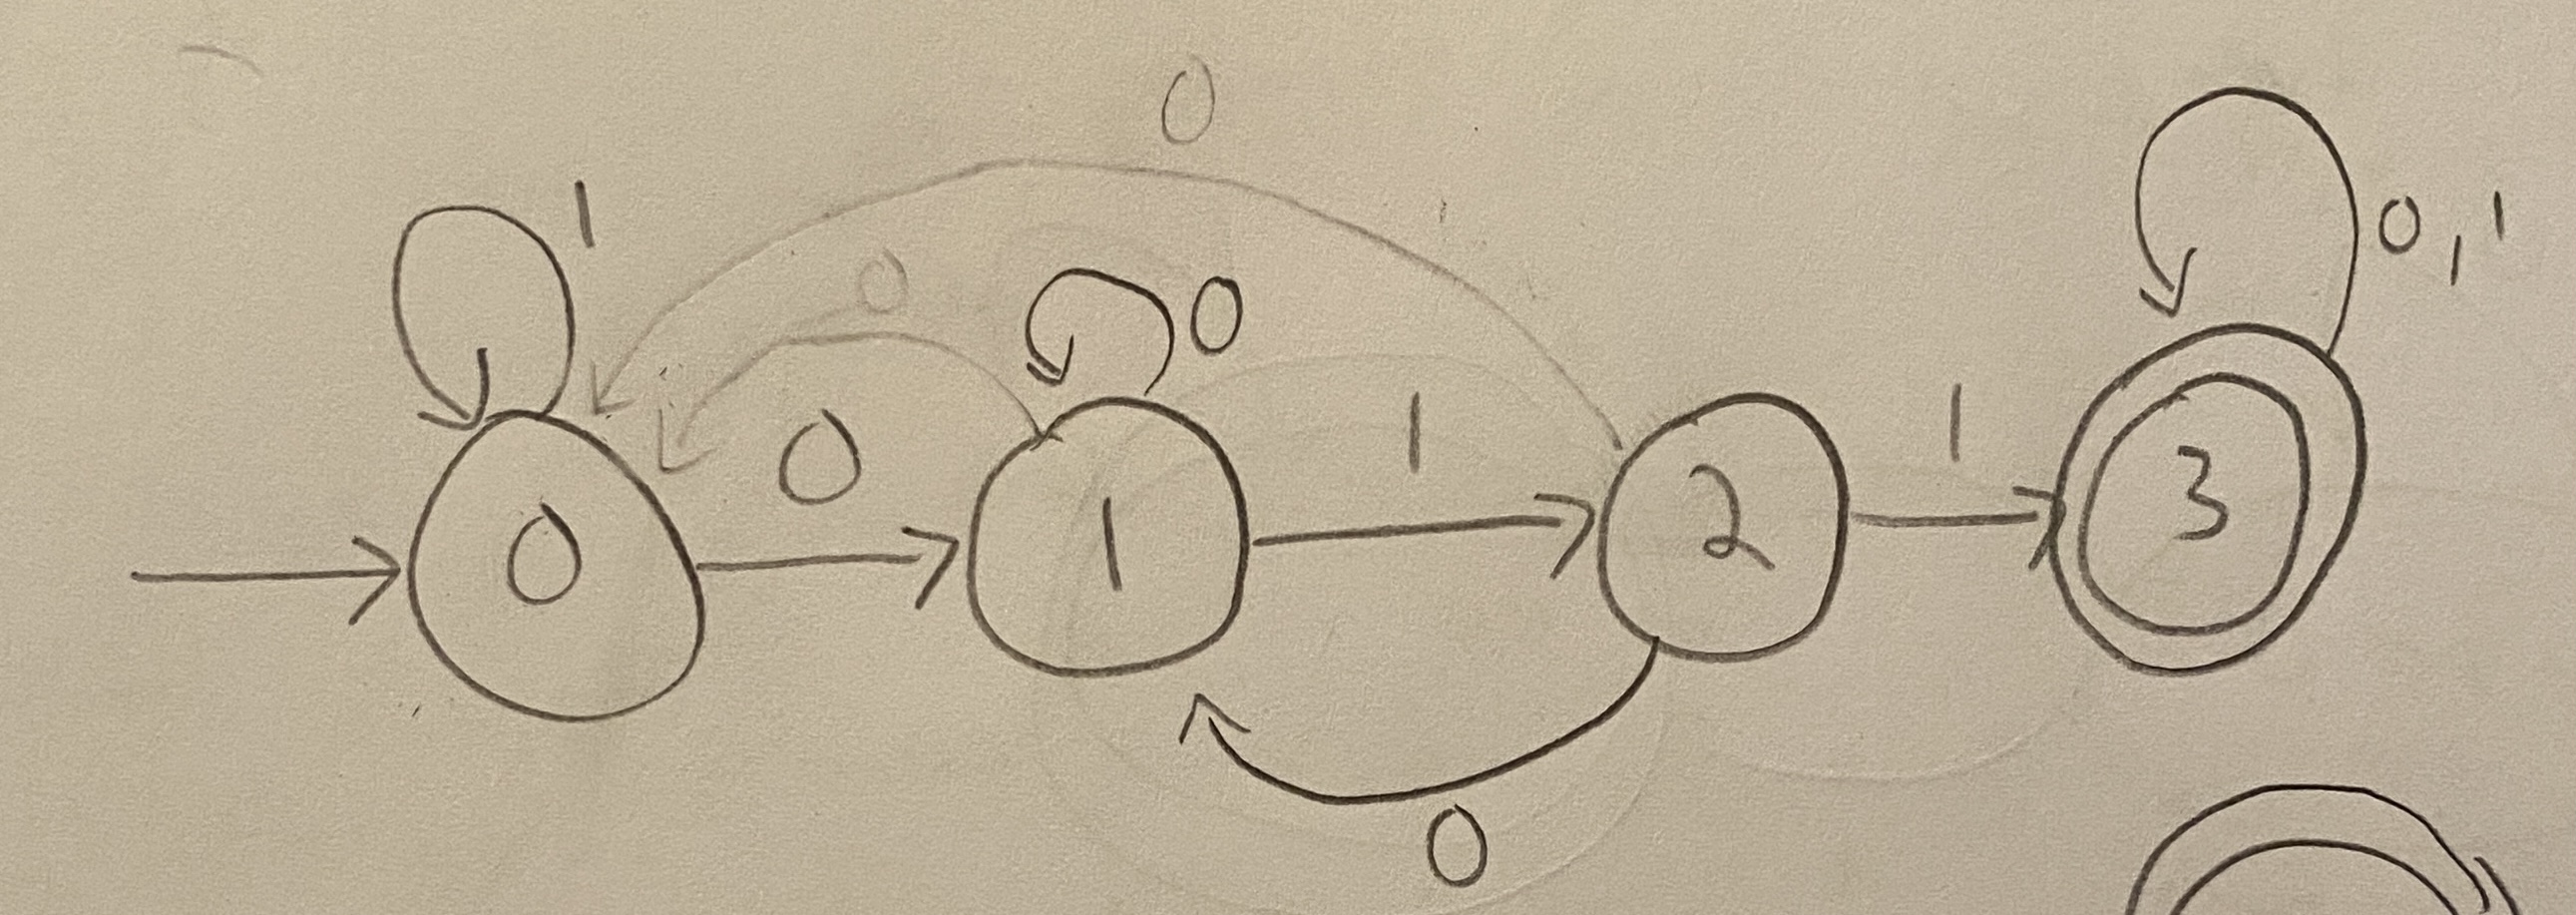 0
1
0
0
0
1
1
0,1
0
1
2
3
0